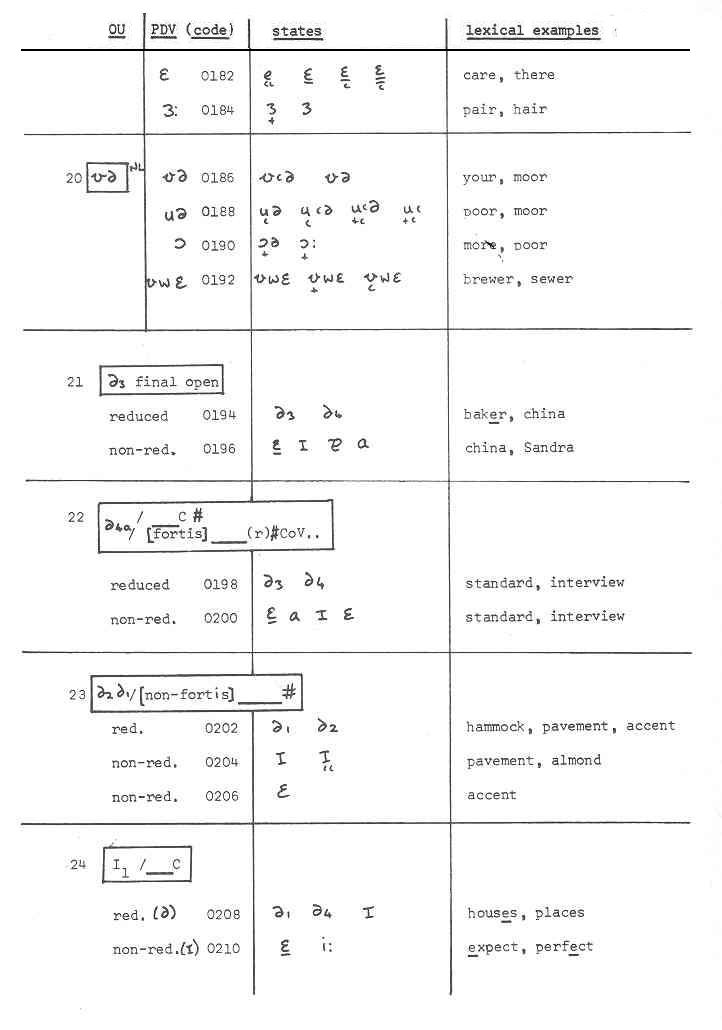 OU PDV (code) states lexical examples
ɛ 0182 care, there
ɜ: 0184 ɜ ɜ pair, hair
20 ʊə NL ʊə 0186 ʊə your, moor
uə 0188 poor, moor
ɔ 0190 ɔə ɔ: more, poor
ʊwɛ 0192 ʊwɛ ʊwɛ ʊwɛ brewer, sewer
21 ə₃ final open
reduced 0194 ə₃ ə₄ baker, china
non-red. 0196 ɛ ɪ ɐ a china, Sandra
22 ə₄ₐ/ / ___C #
[fortis]____(r)#CoV..
reduced 0198 ə₃ ə₄ standard, interview
non-red. 0200 ɛ a ɪ ɛ standard, interview
23 ə₂ə₁/[non-fortis]_____#
red. 0202 ə₁ ə₂ hammock, pavement, accent
non-red. 0204 I I pavement, almond
non-red. 0206 ɛ accent
24 I₁ /___C
red. (ə) 0208 ə₁ ə₄ I houses, places
non-red.(ɪ) 0210 ɛ i: expect, perfect